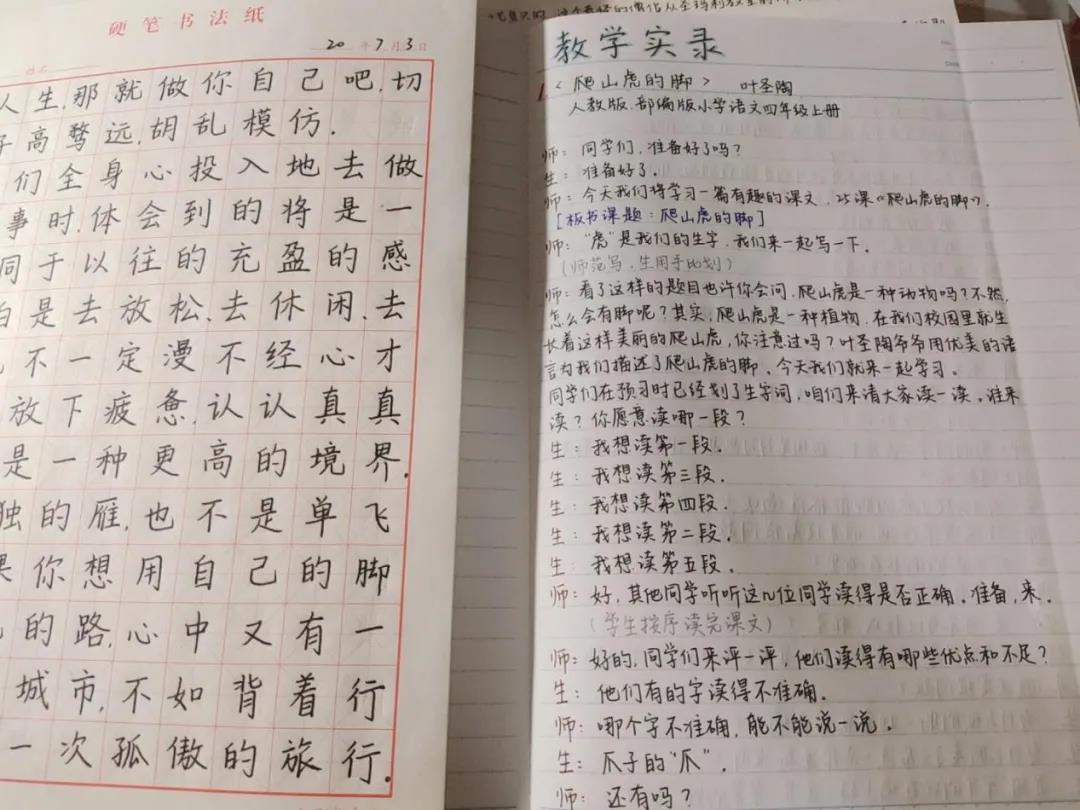 硬笔书法纸
20 年 7 月 3 日
人生,那就做你自己吧,切
子高骛远,胡乱模仿.
们全身心投入地去做
事时,体会到的将是一
同于以往的充盈的感
白是去放松,去休闲,去
不一定漫不经心才
放下疲惫,认认真真
是一种更高的境界.
独的雁,也不是单飞
果你想用自己的脚
的路,心中又有一
城市,不如背着行
一次孤傲的旅行.
教学实录
<爬山虎的脚> 叶圣陶
人教版.部编版小学语文四年级上册
师:同学们,准备好了吗?
生:准备好了.
师:今天我们将学习一篇有趣的课文,25课《爬山虎的脚》.
[板书课题:爬山虎的脚]
师:"虎"是我们的生字,我们来一起写一下.
(师范写,生用手比划)
师:看了这样的题目也许你会问,爬山虎是一种动物吗?不然,
怎么会有脚呢?其实,爬山虎是一种植物,在我们校园里就生
长着这样美丽的爬山虎,你注意过吗?叶圣陶爷爷用优美的语
言为我们描述了爬山虎的脚,今天我们就来一起学习.
同学们在预习时已经划了生字词,咱们来请大家读一读,谁来
读?你愿意读哪一段?
生:我想读第一段.
生:我想读第三段.
生:我想读第四段.
生:我想读第二段.
生:我想读第五段.
师:好,其他同学听听这几位同学读得是否正确.准备,来.
(学生按序读完课文)
师:好的,同学们来评一评,他们读得有哪些优点和不足?
生:他们有的字读得不准确.
师:哪个字不准确,能不能说一说.
生:爪子的"爪".
师:还有吗?